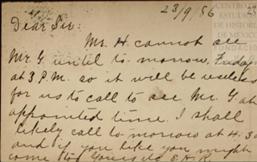 23/9/86
Dear Sir:
Mr. H. cannot see
Mr G until to-morrow, Friday
at 3 P.M. so it will be useless
for us to call to see Mr G at
appointed time. I shall
likely call to-morrow at 4.30
and if you like you might
come too Yours